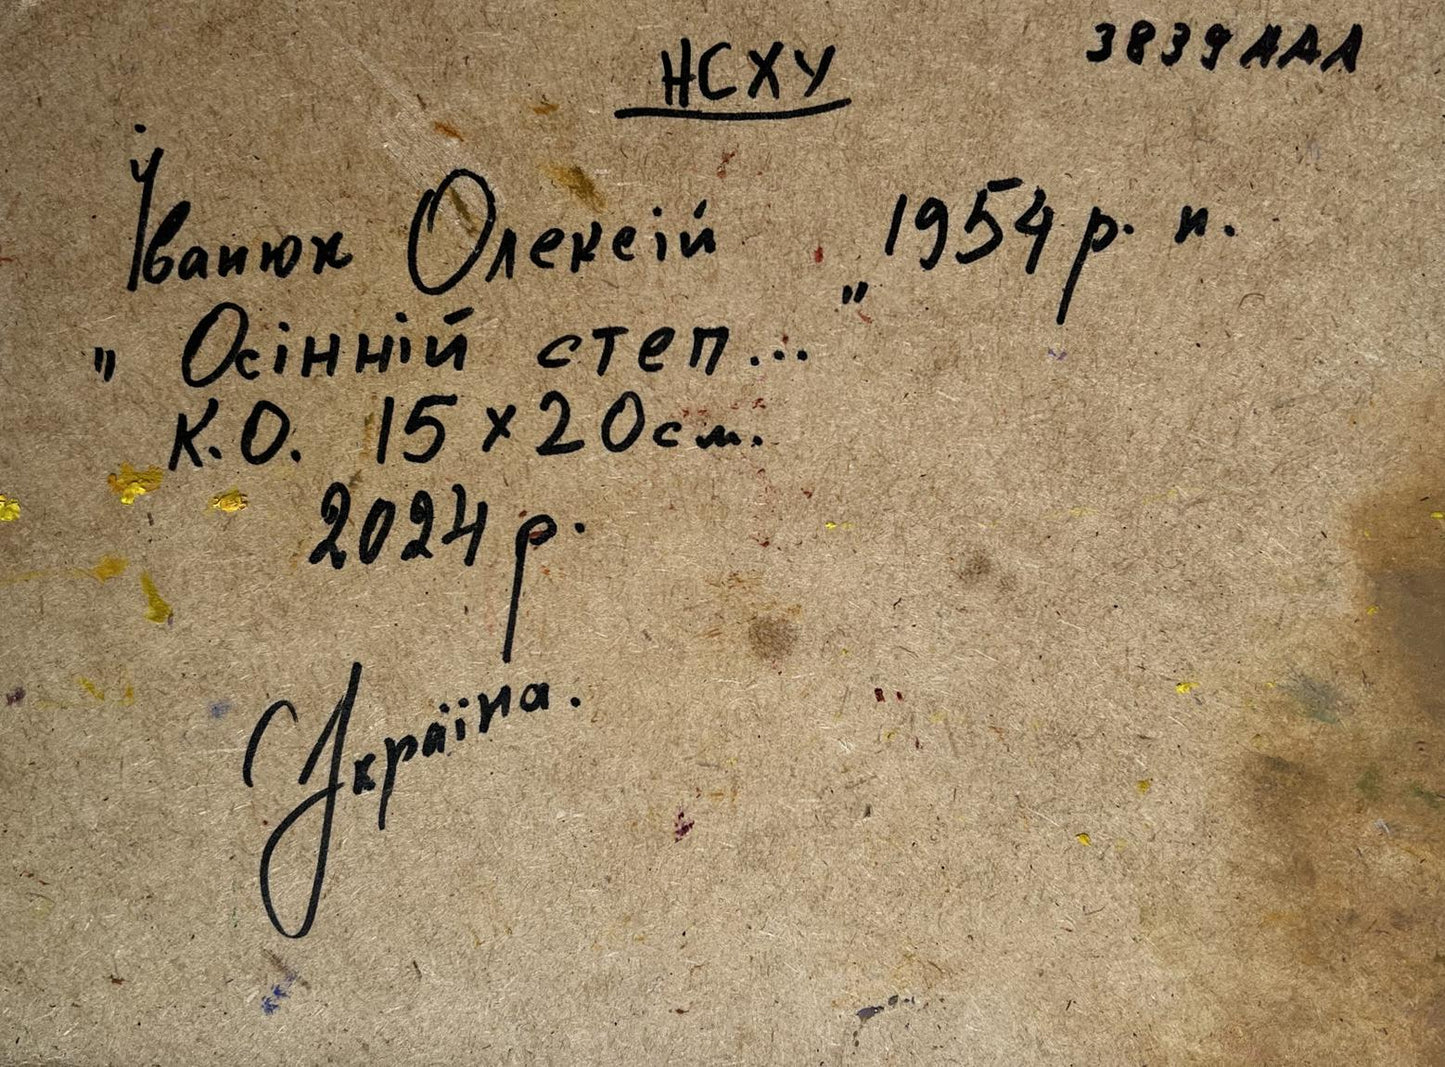 НСХУ
3839ААА
Іванюк Олексій 1954 р. н.
„Осінній степ..."
К.О. 15×20см.
2024 р.
Україна.